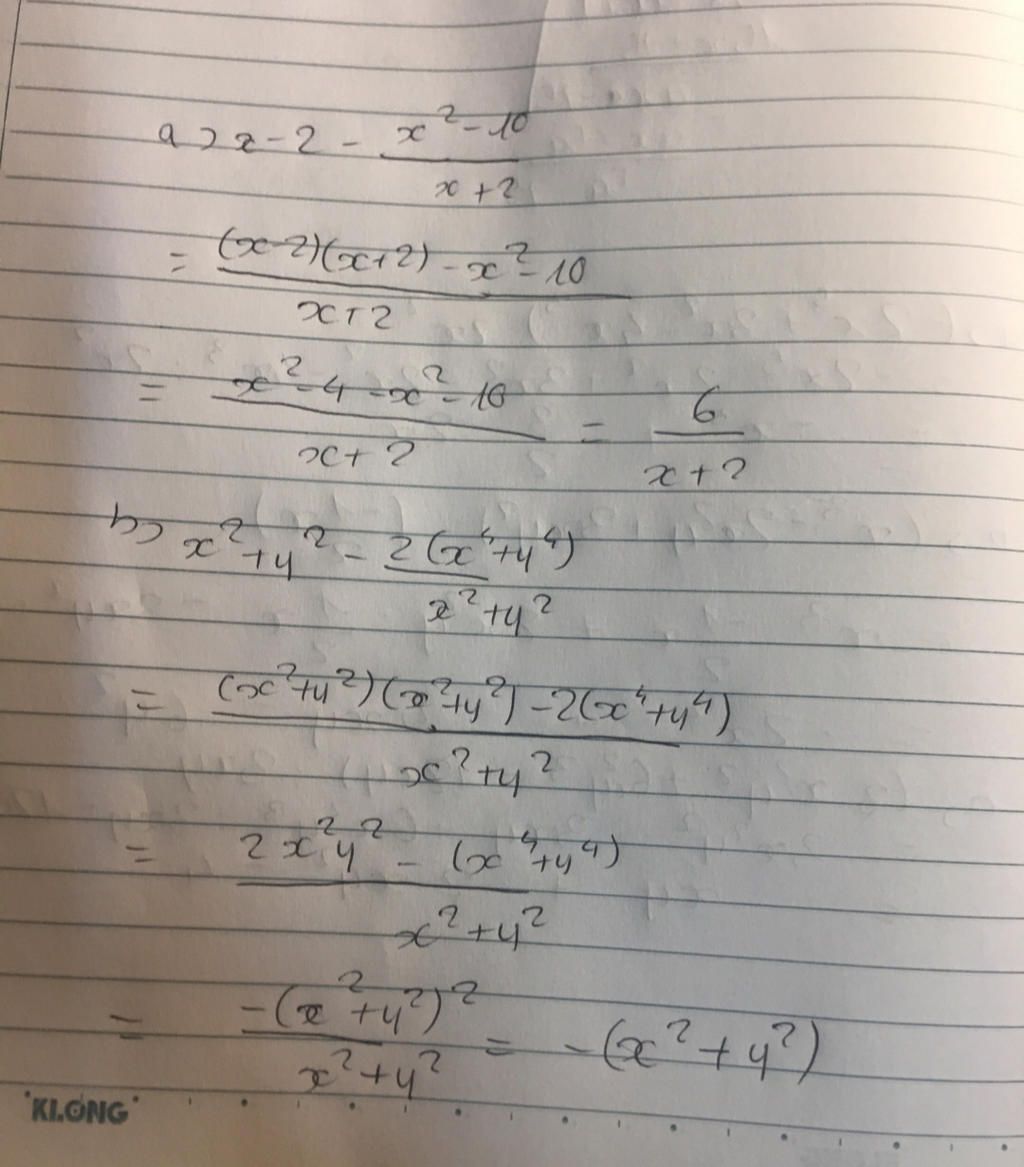 a) x - 2 - (x² - 10)/(x + 2)
= ((x-2)(x+2) - x² - 10)/(x+2)
= (x² - 4 - x² - 10)/(x+2) = 6/(x+2)
b) x² + y² - 2(x⁴ + y⁴)/(x² + y²)
= ((x²+y²)(x²+y²) - 2(x⁴+y⁴))/(x²+y²)
= (2x²y² - (x⁴+y⁴))/(x²+y²)
= -(x²+y²)²/(x²+y²) = -(x²+y²)
KLONG